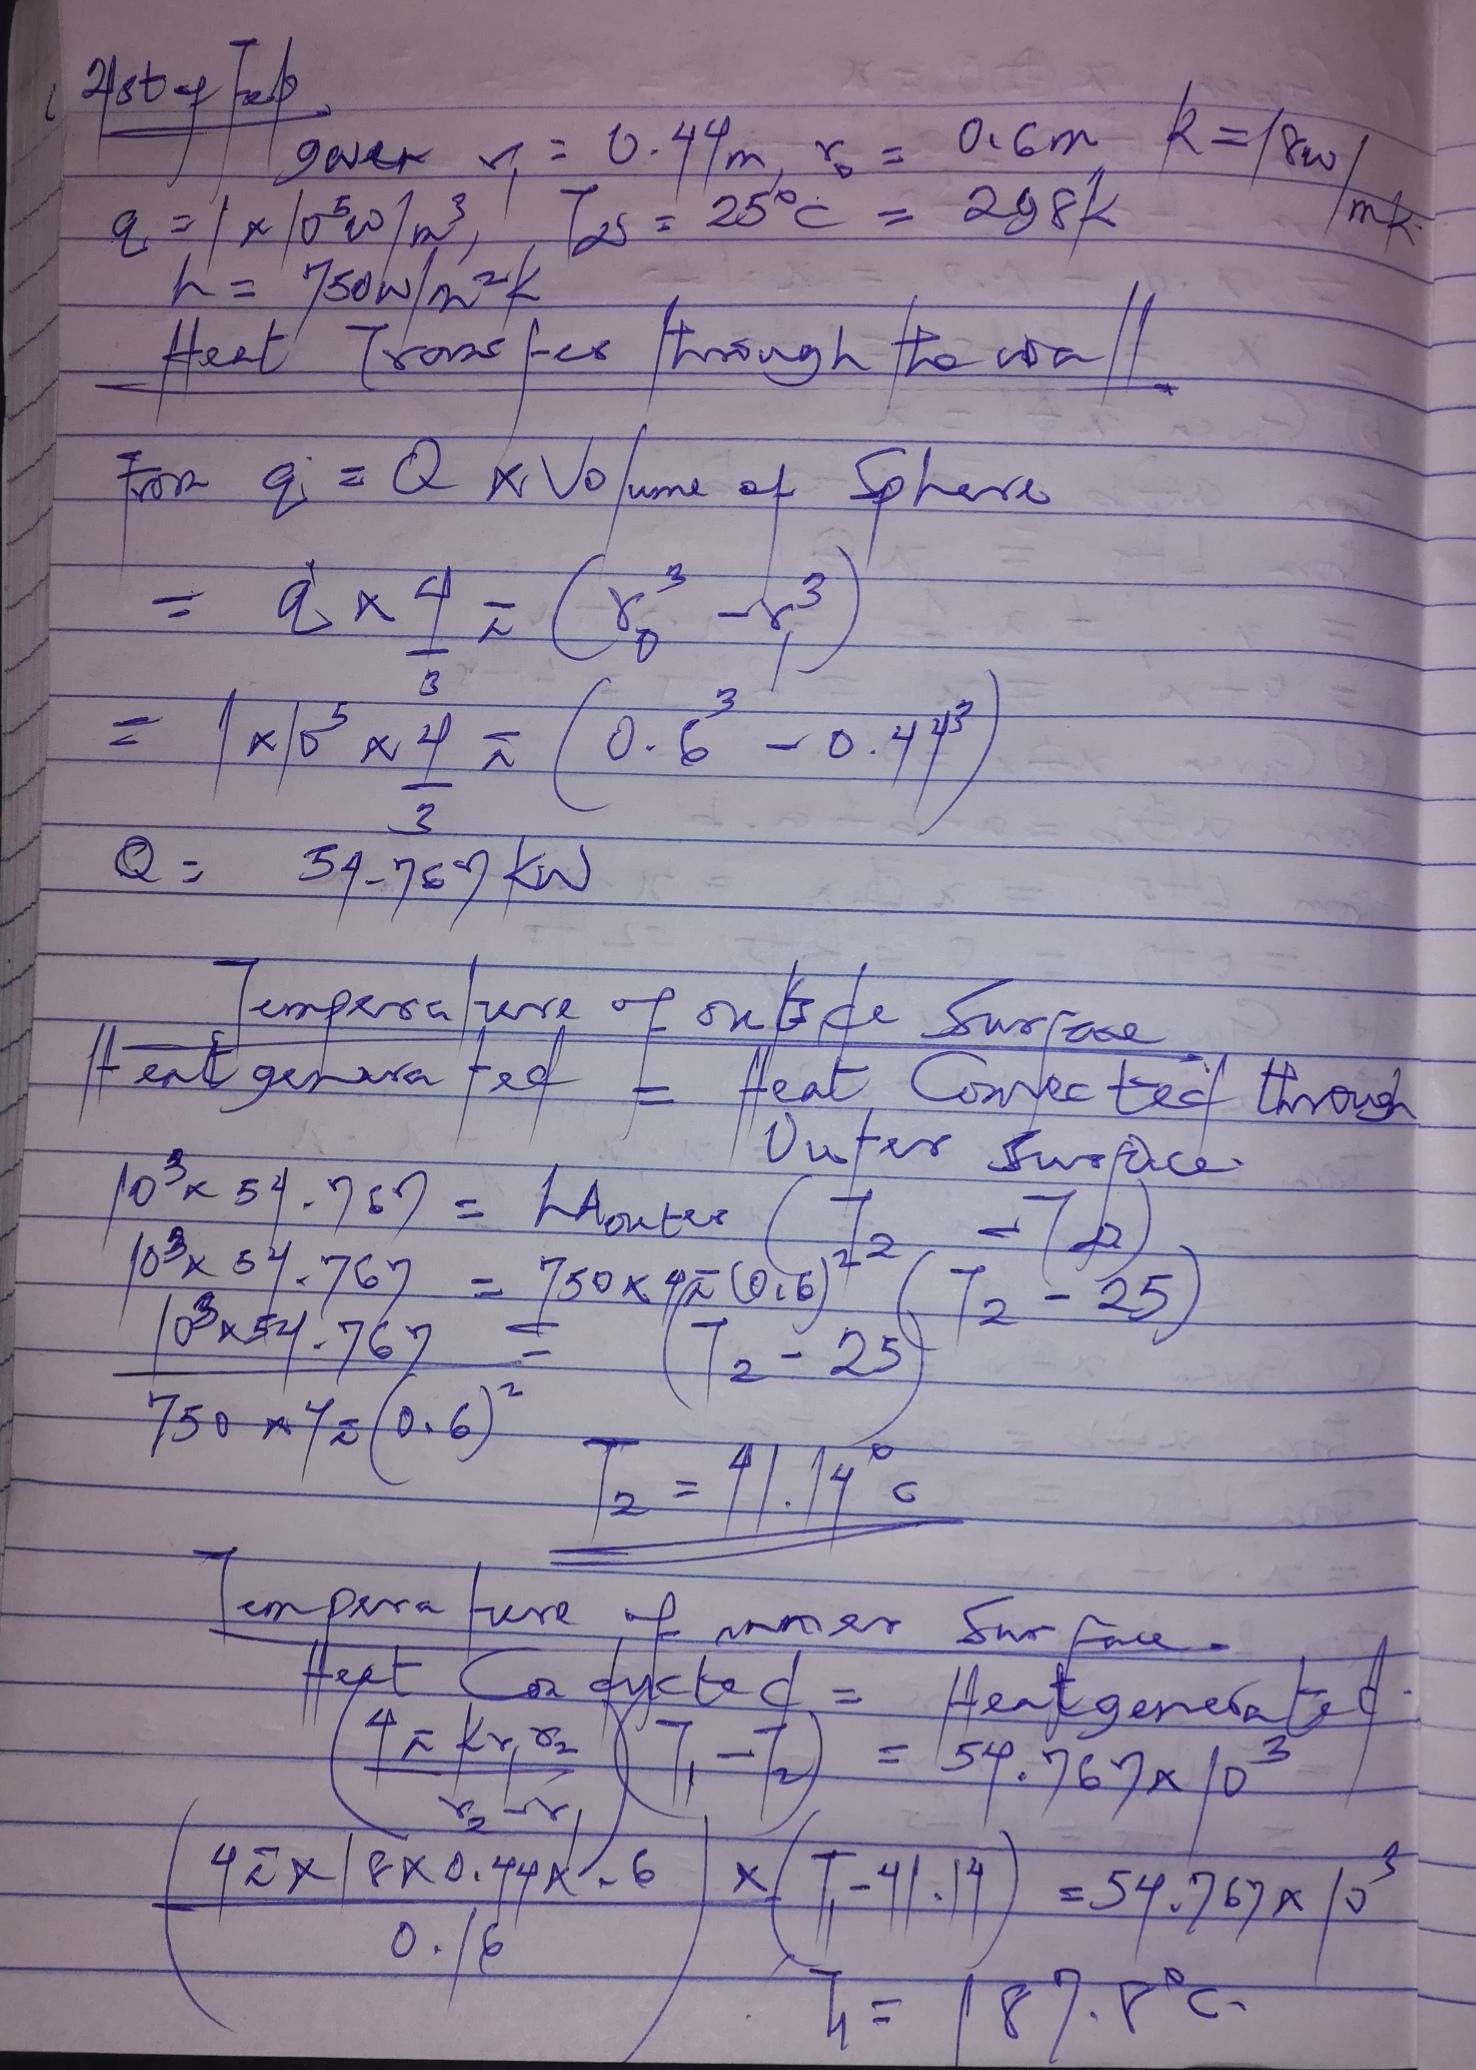 21st of Feb
given r₁ = 0.44m, r₀ = 0.6m k = 18w/mk.
q = 1 x 10⁵w/m³, T₂s = 25°C = 298k
h = 750w/m²k
Heat Transfer through the wall.
From q̇ = Q x Volume of Sphere
= q̇ x 4/3 π (r₀³ - r₁³)
= 1x10⁵ x 4/3 π (0.6³ - 0.44³)
Q = 54.767kW
Temperature of outside Surface
Heat generated = Heat Convected through
Outer Surface.
10³x 54.767 = hAouter (T₂ - T∞)
10³x 54.767 = 750x4π(0.6)² (T₂ - 25)
10³x54.767 / 750 x4π(0.6)² = (T₂ - 25)
T₂ = 41.14°c
Temperature of inner Surface.
Heat Conducted = Heat generated.
(4π kr₁r₂ / r₂ - r₁)(T₁ - T₂) = 54.767x10³
(4πx18x0.44x.6 / 0.16) x (T₁-41.14) = 54.767x10³
T₁ = 187.8°C.